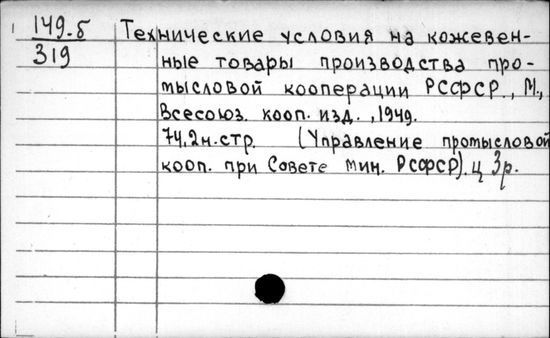 149.б Технические условия на кожевен-
319 ные товары производства про-
мысловой кооперации РСФСР., М.,
Всесоюз. кооп. изд., 1949.
74,2н.стр. (Управление промысловой
кооп. при Совете мин. РСФСР). ц 3р.